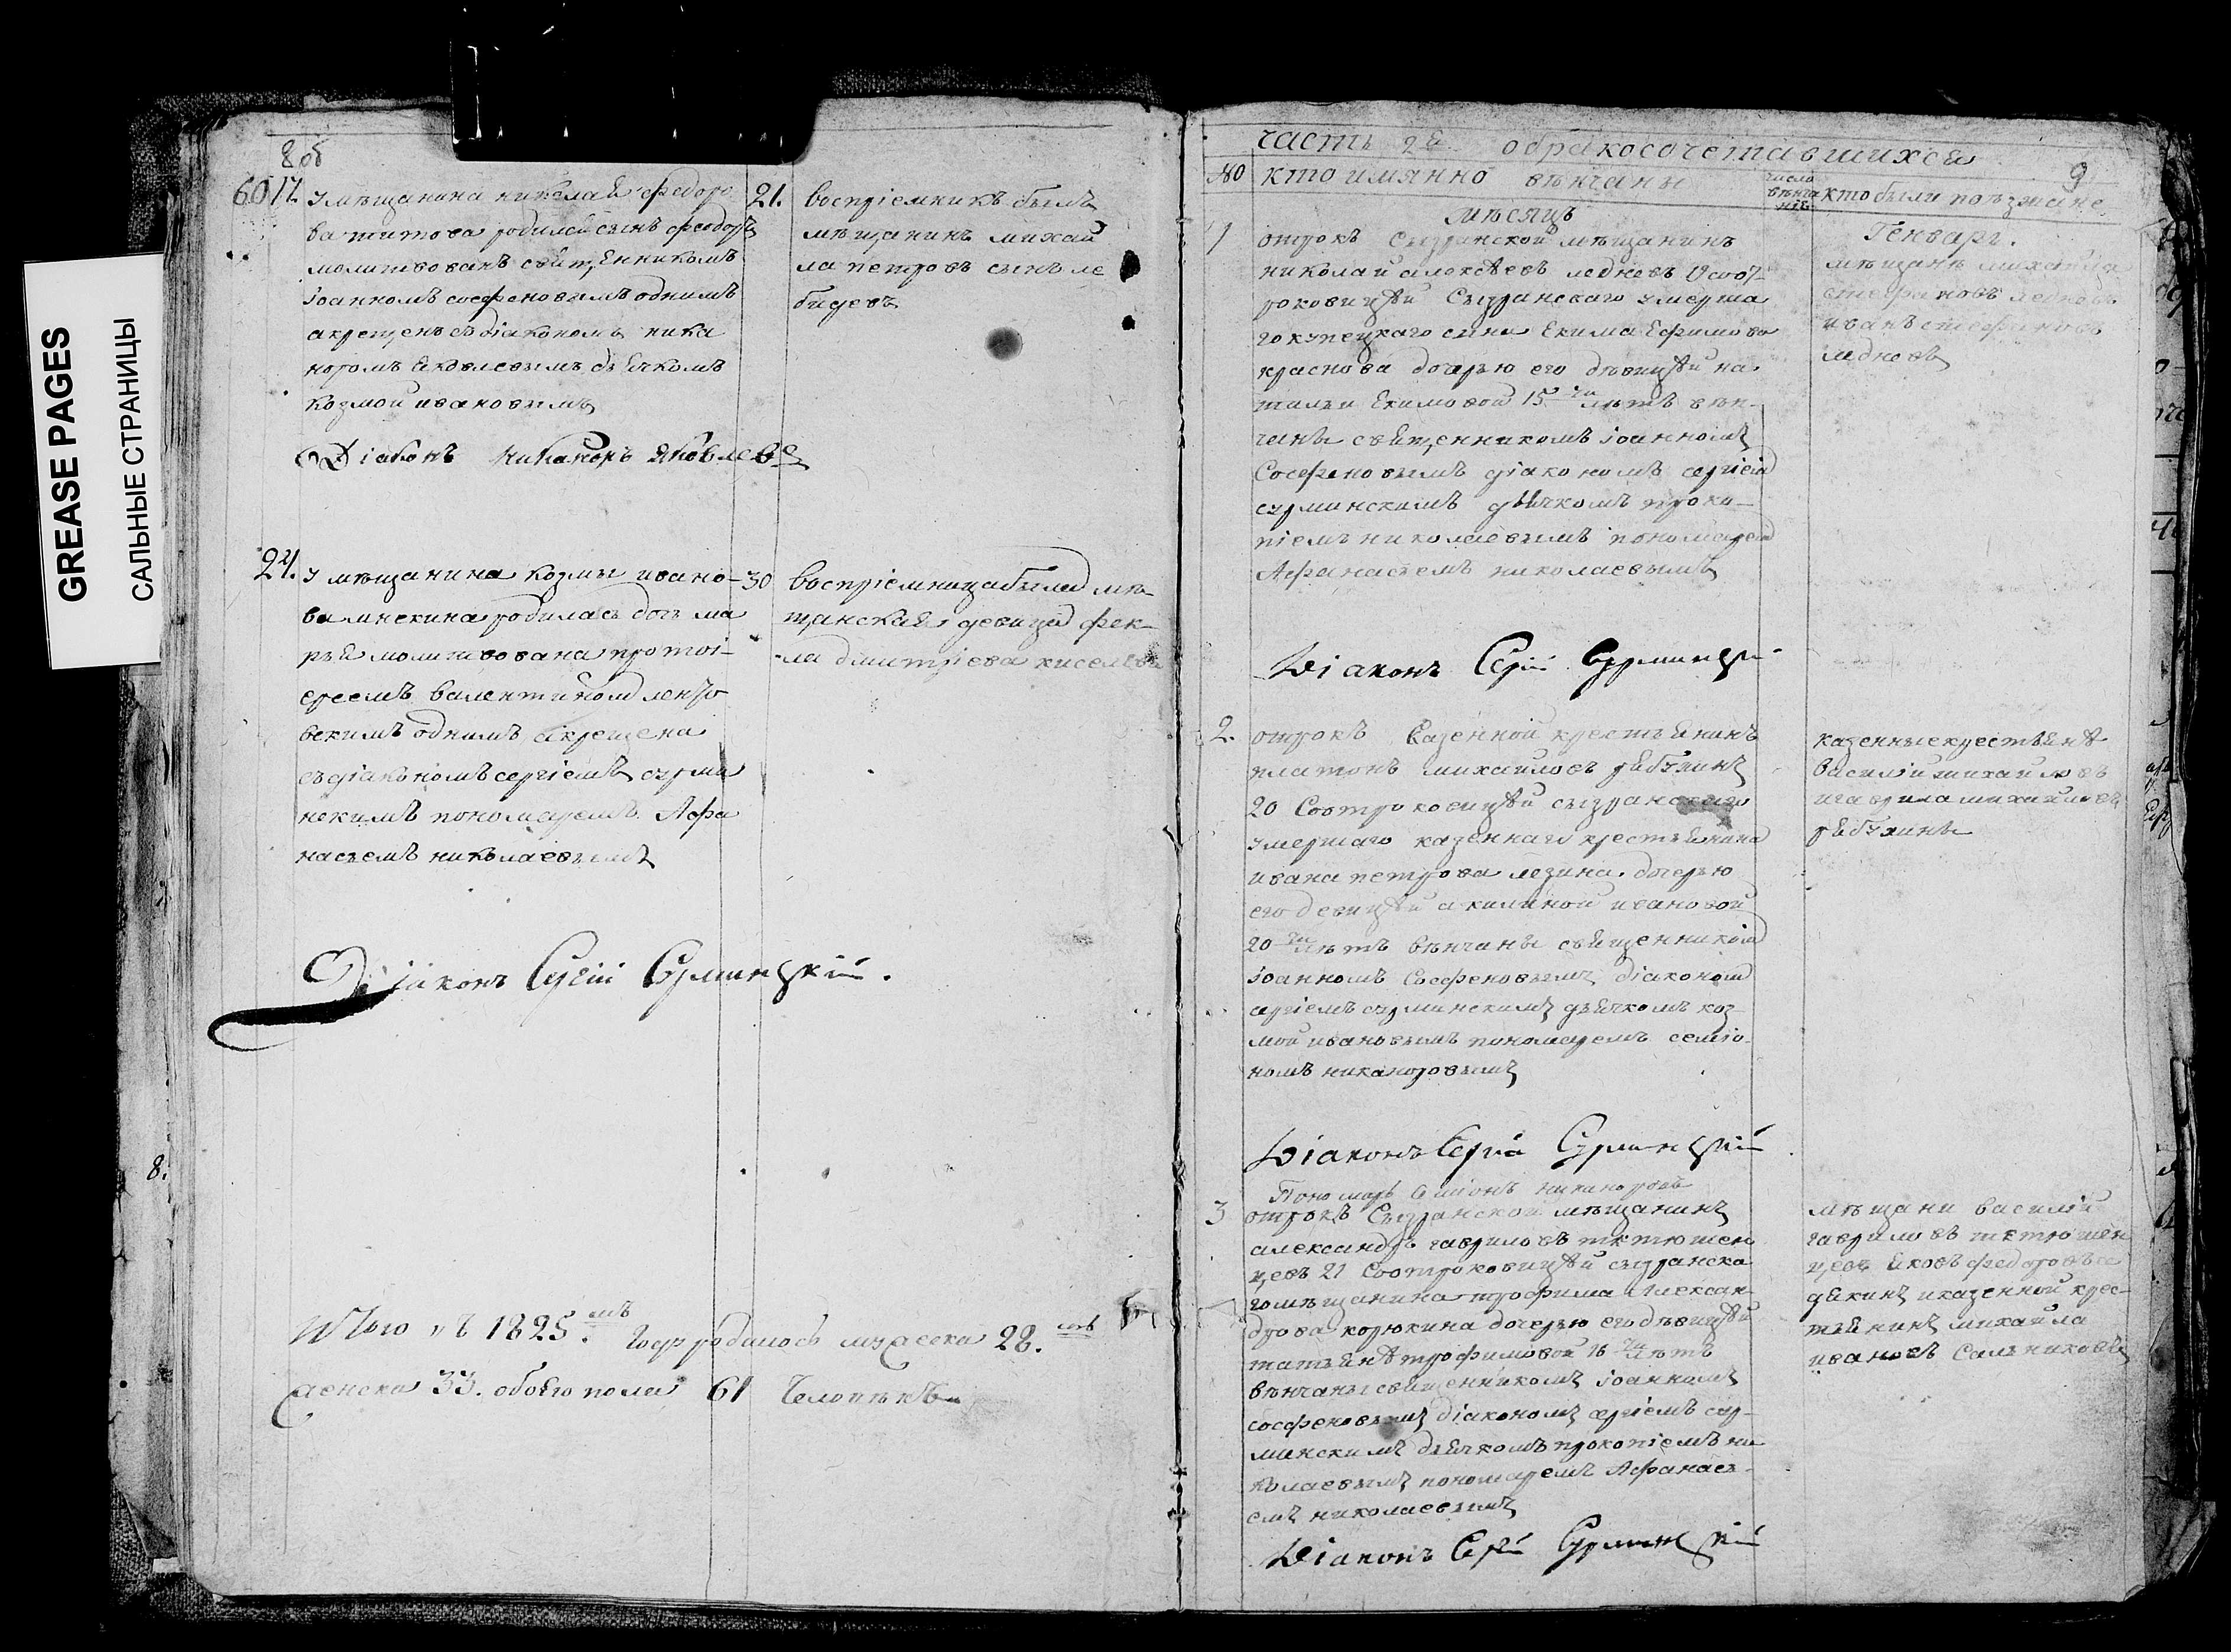 GREASE PAGES
САЛЬНЫЕ СТРАНИЦЫ
8 об
60 17 у мѣщанина николая федоро 21.
ва титова родился сынъ феодоръ
молитвованъ священникомъ
іоанномъ сосфеновымъ однимъ
а крещенъ съ діакономъ ника
норомъ яковлевымъ дьячкомъ
козмой ивановымъ
воспріемникъ былъ
мѣщанинъ михай
ла петровъ сынъ ле
бидевъ
Діаконъ Никаноръ Яковлевъ
24. у мѣщанина козмы ивано- 30
ва минекина родилась дочь ма
рья молитвована протоі-
ереемъ валентином
векимъ однимъ а крещена
съ діакономъ сергіемъ сурми
нскимъ пономаремъ Афа
насьемъ николаевымъ
воспріемница была мѣ-
щанская девица фек-
ла дмитріева киселева
Діаконъ Сергій Сурминскій.
Итого въ 1825. мъ годѣ родилось мужеска 28.
женска 33. обоего пола 61 человѣкъ
8.
часть 2я о бракосочетавшихся
9
№ кто имянно вѣнчаны
число вѣнчанія
кто были поѣзжане
мѣсяцъ
Генварь.
1 отрокъ Сызранской мѣщанинъ
николай алексѣевъ ледневъ со от
роковицѣй Сызранскаго умерша
го купецкаго сына Екима Ефимова
краснова дочерью его дѣвицѣй на
тальи Екимовой 15 ти лѣтъ вѣн-
чаны священникомъ іоанномъ
Сосфеновымъ діакономъ сергіем
сурминскимъ дьячкомъ проко-
піемъ николаевымъ пономарем
Афанасьемъ николаевымъ
мѣщанъ михайла
стефановъ ледневъ
иванъ стефановъ
ледневъ
Діаконъ Сергій Сурминскій
2. отрокъ Казенной крестьянинъ
платонъ михайловъ рябухинъ
20 Со отроковицѣй сызранскаго
умершаго казеннаго крестьянина
ивана петрова лезина дочерью
его девицѣй акилиной ивановой
20 ти лѣтъ вѣнчаны священником
іоанномъ Сосфеновымъ діаконом
сергіемъ сурминскимъ дьячкомъ коз
мой ивановымъ пономаремъ семіо
номъ никаноровымъ
казенные крестьянѣ
василій михайловъ
и гаврила михайловъ
рябухины
Діаконъ Сергій Сурминскій
Пономарь Семіонъ никаноровъ
3 отрокъ Сызранской мѣщанинъ
александръ гавриловъ тетюшен
цевъ 21 Со отроковицѣй сызранска
го мѣщанина трофима Алексан
дрова корюкина дочерью его дѣвицѣй
татьянѣ трофимовой 16 ти лѣтъ
вѣнчаны священникомъ іоанномъ
сосфеновымъ діакономъ сергіемъ сур-
минскимъ дьячкомъ прокопіемъ ни
колаевымъ пономаремъ Афанась-
емъ николаевымъ
мѣщани василій
гавриловъ тетюшен
цевъ яковъ федоровъ
и казенной крес-
тьянинъ михайла
ивановъ Сальниковъ
Діаконъ Сергій Сурминскій